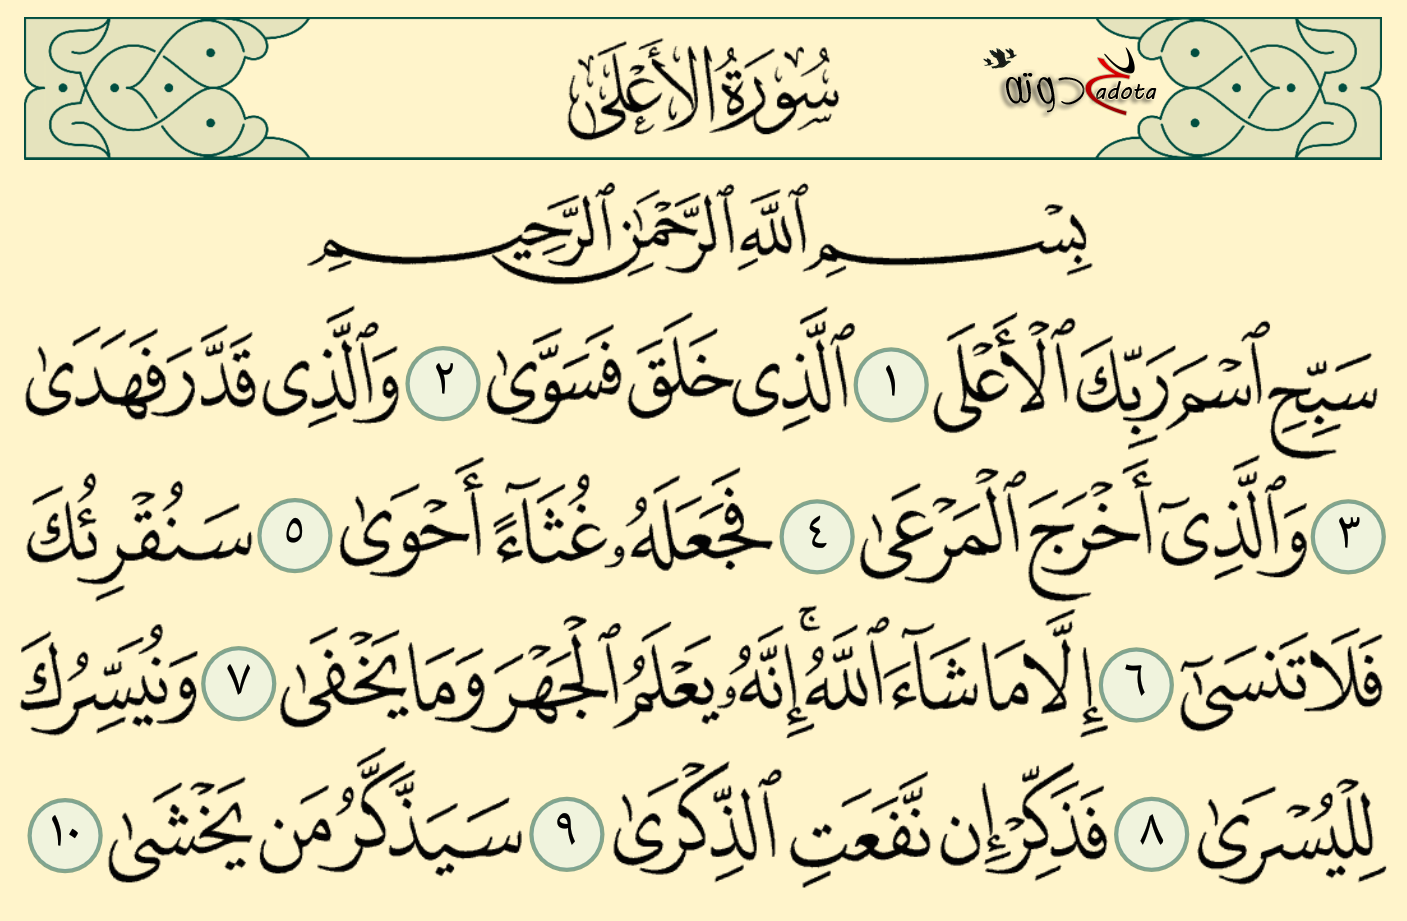 سُورَةُ الأَعْلَىٰ
حدوته adota
بِسْمِ ٱللَّهِ ٱلرَّحْمَٰنِ ٱلرَّحِيمِ
سَبِّحِ ٱسْمَ رَبِّكَ ٱلْأَعْلَى ١ ٱلَّذِى خَلَقَ فَسَوَّىٰ ٢ وَٱلَّذِى قَدَّرَ فَهَدَىٰ
٣ وَٱلَّذِىٓ أَخْرَجَ ٱلْمَرْعَىٰ ٤ فَجَعَلَهُۥ غُثَآءً أَحْوَىٰ ٥ سَنُقْرِئُكَ
فَلَا تَنسَىٰٓ ٦ إِلَّا مَا شَآءَ ٱللَّهُ ۚ إِنَّهُۥ يَعْلَمُ ٱلْجَهْرَ وَمَا يَخْفَىٰ ٧ وَنُيَسِّرُكَ
لِلْيُسْرَىٰ ٨ فَذَكِّرْ إِن نَّفَعَتِ ٱلذِّكْرَىٰ ٩ سَيَذَّكَّرُ مَن يَخْشَىٰ ١٠